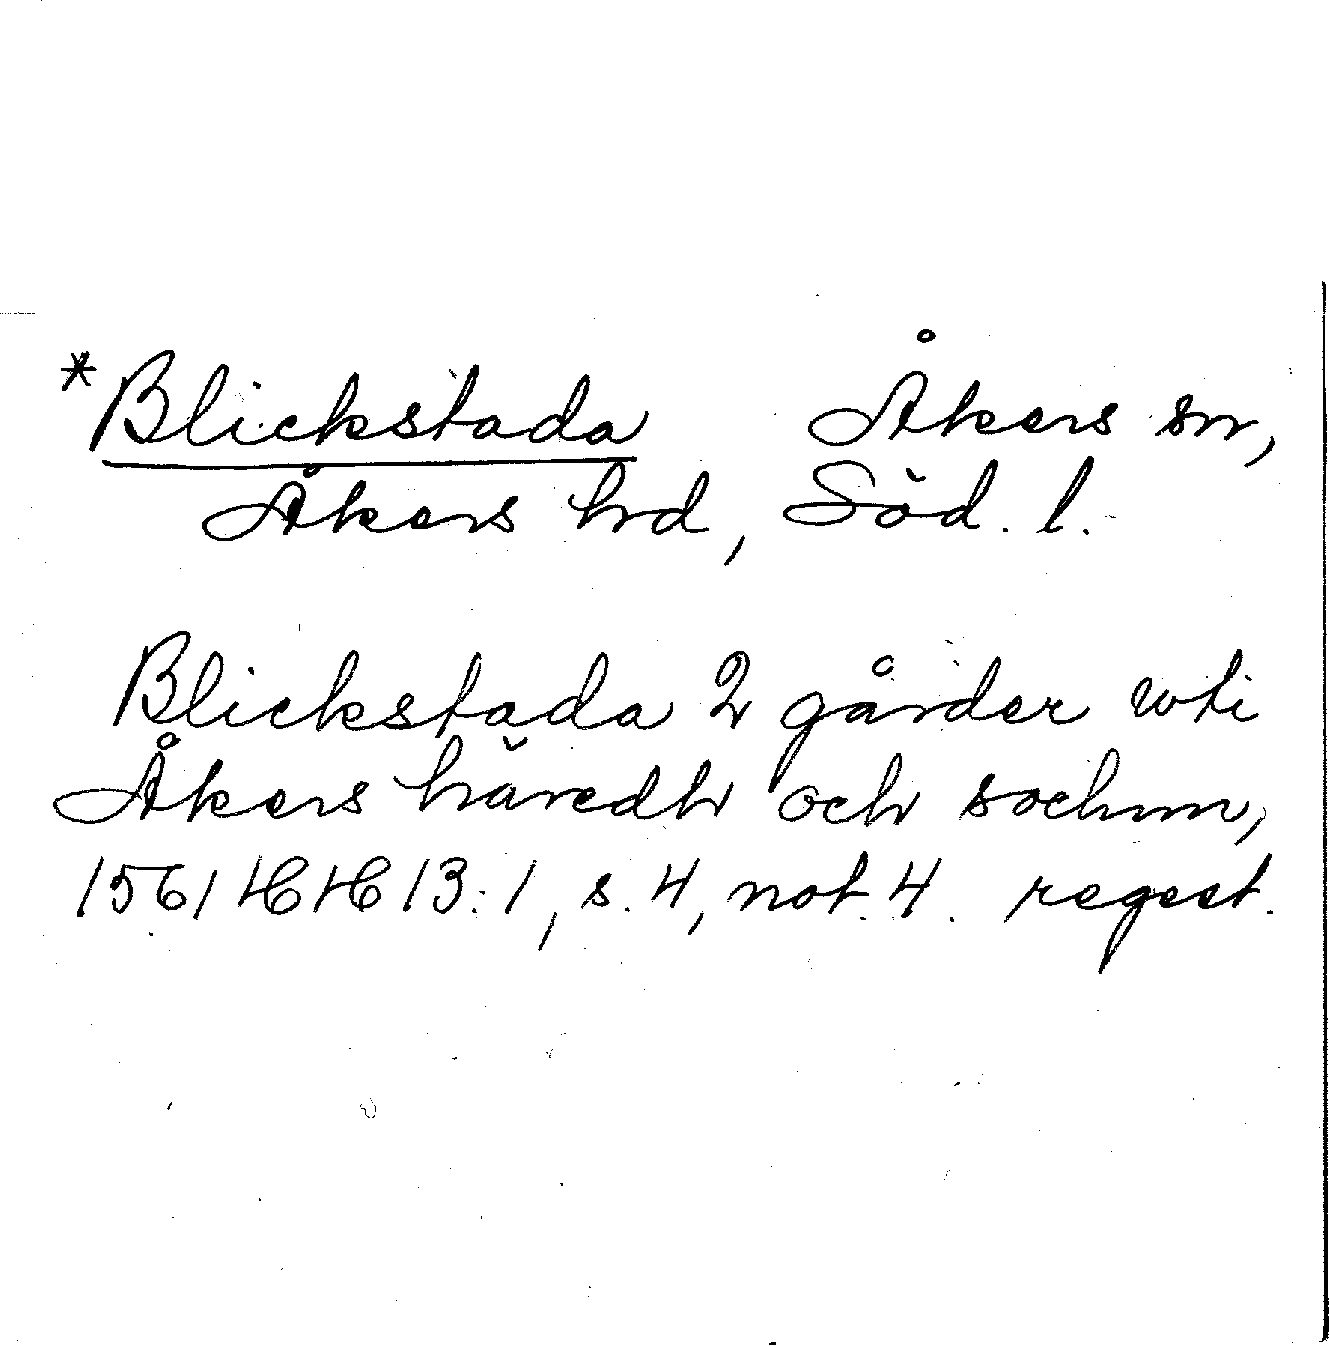 *Blickstada Åkers sn,
Åkers hrd, Söd. l.
Blickstada 2 gårder wti
Åkers häredh och sochnn,
1561 HH 13:1, s. 4, not. 4. regest.